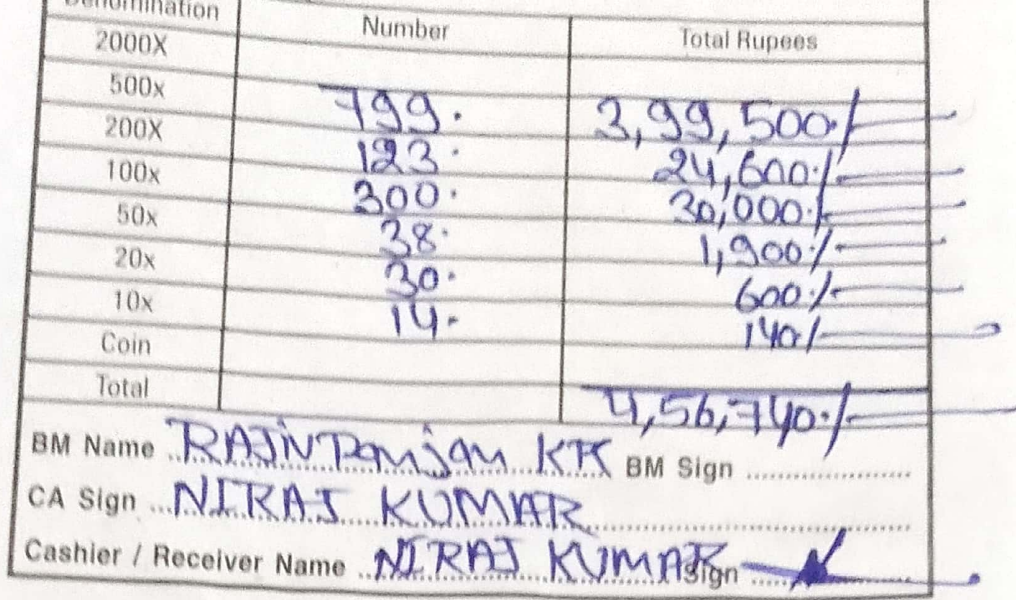 Denomination Number Total Rupees
2000X
500x 799. 3,99,500./
200X 123. 24,600./-
100x 300. 30,000./-
50x 38. 1,900./-
20x 30. 600./-
10x 14.- 140/-
Coin
Total 4,56,740./-
BM Name RAJIV Ranjan KR BM Sign
CA Sign NIRAJ KUMAR
Cashier / Receiver Name NIRAJ KUMAR Sign